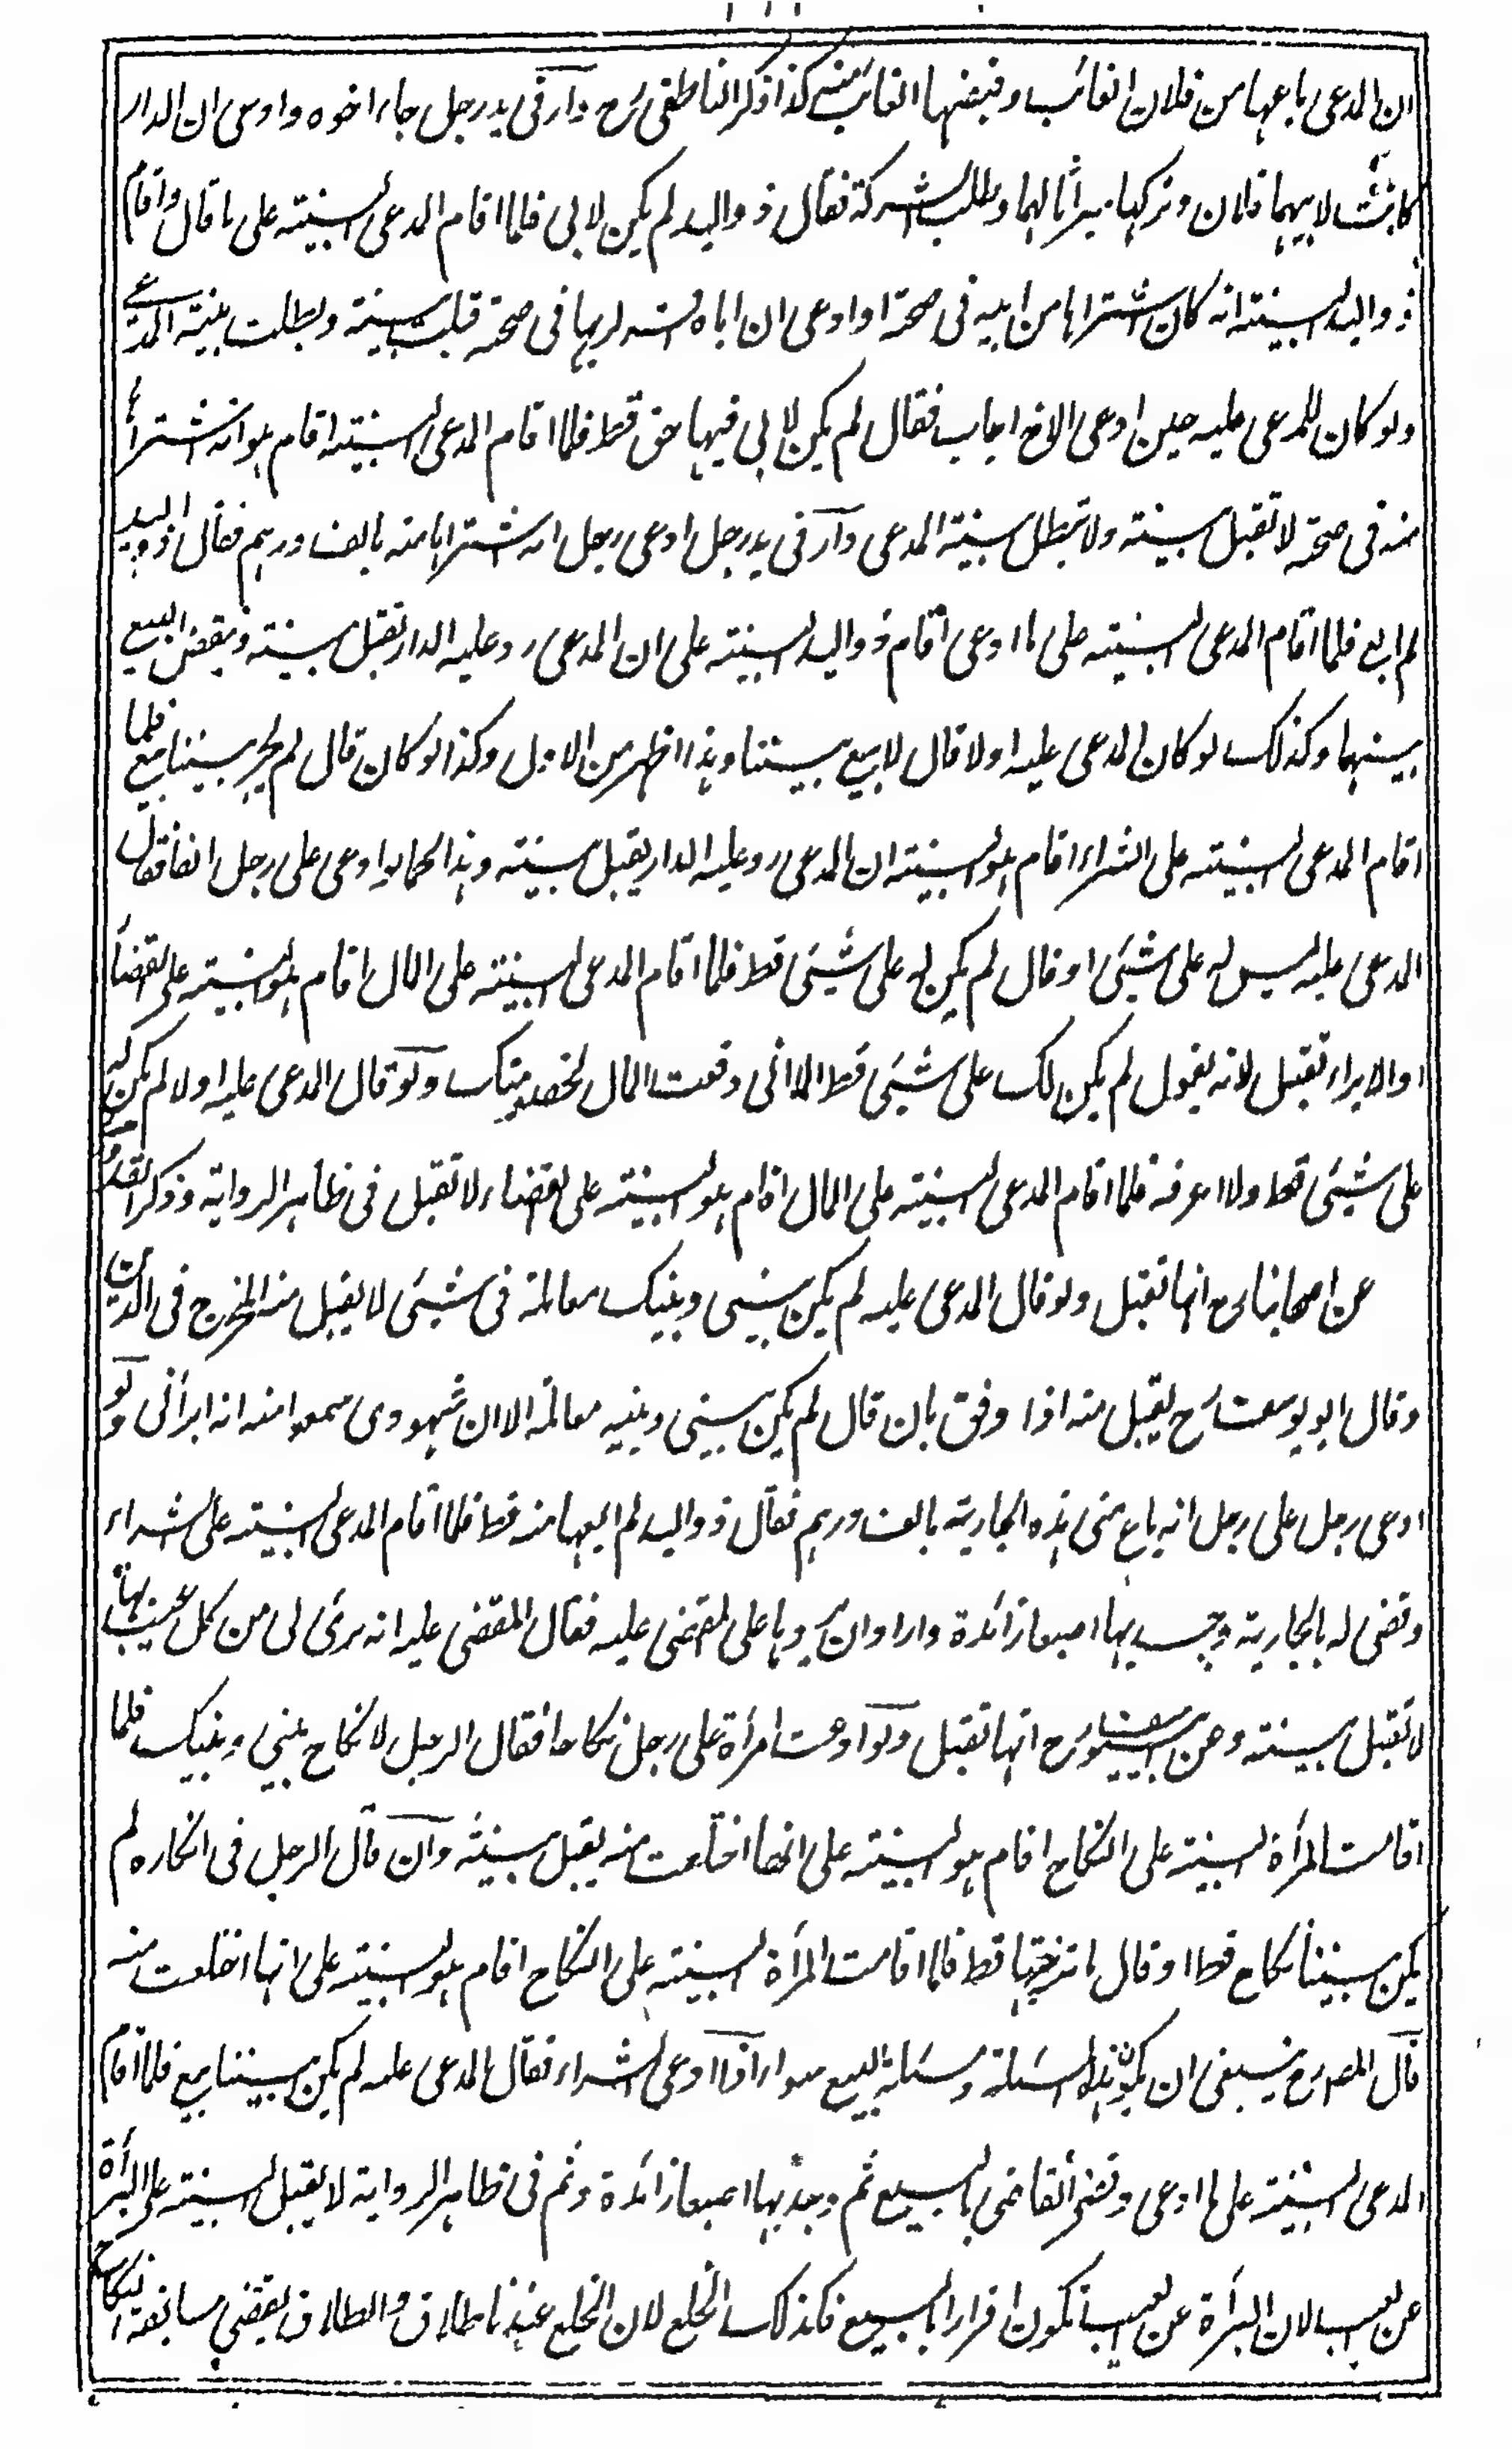 ان المدعى باعها من فلان الغائب وقبضها الغائب منه كذا ذكر الناطفى رح دار فى يد رجل جاء اخوه وادعى ان الدار
كانت لابيهما فلان وتركها ميراثا لهما وطلب الشركة فقال ذو اليد لم يكن لابى فلما اقام المدعى البينة على ما قال واقام
ذو اليد البينة انه كان اشتراها من ابيه فى صحته او ادعى ان اباه اقر له بها فى صحته قبلت بينته وبطلت بينة المدعى
ولو كان المدعى عليه حين ادعى الاخ اجاب فقال لم يكن لابى فيها حق قط فلما اقام المدعى البينة اقام هو انه اشتراها
منه فى صحته لا تقبل بينته ولا تبطل بينة المدعى دار فى يد رجل ادعى رجل انه اشتراها منه بالف درهم فقال ذو اليد
لم ابع فلما اقام المدعى البينة على ما ادعى اقام ذو اليد البينة على ان المدعى رد عليه الدار تقبل بينته وينقض البيع
بينهما وكذلك لو كان المدعى عليه اولا قال لا بيع بيننا وهذا اظهر من الاول وكذا لو كان قال لم يجر بيننا بيع فلما
اقام المدعى البينة على الشراء اقام هو البينة ان المدعى رد عليه الدار يقبل بينته وهذا كما لو ادعى على رجل الفا فقال
المدعى عليه ليس له على شيئ او قال لم يكن له على شيئ قط فلما اقام المدعى البينة على المال اقام هو البينة على القضاء
او الابراء تقبل لانه يقول لم يكن لك على شيئ قط الا انى دفعت المال لخصومتك ولو قال المدعى عليه اولا لم يكن له
على شيئ قط ولا اعرفه فلما اقام المدعى البينة على المال اقام هو البينة على القضاء لا تقبل فى ظاهر الرواية وذكر القدورى
عن اصحابنا رح انها تقبل ولو قال المدعى عليه لم يكن بينى وبينك معاملة فى شيئ لا يقبل منه المخرج فى الدين
وقال ابو يوسف رح يقبل منه اذا وفق بان قال لم يكن بينى وبينه معاملة الا ان شهودى سمعوا منه انه ابرأنى ولو
ادعى رجل على رجل انه باع منى هذه الجارية بالف درهم فقال ذو اليد لم ابعها منه قط فلما اقام المدعى البينة على الشراء
وقضى له بالجارية وجد بها اصبعا زائدة واراد ان يردها على المقضى عليه فقال المقضى عليه انه برئ لى من كل عيب بها
لا تقبل بينته وعن ابى يوسف رح انها تقبل ولو ادعت امرأة على رجل نكاحا فقال الرجل لا نكاح بينى وبينك فلما
اقامت المرأة البينة على النكاح اقام هو البينة على انها اختلعت منه يقبل بينته وان قال الرجل فى انكاره لم
يكن بيننا نكاح قط او قال ما تزوجتها قط فلما اقامت المرأة البينة على النكاح اقام هو البينة على انها اختلعت منه
قال المصرح ينبغى ان يكون هذه المسئلة ومسئلة البيع سواء اذا ادعى الشراء فقال المدعى عليه لم يكن بيننا بيع فلما اقام
المدعى البينة على ما ادعى وقضى القاضى بالبيع ثم وجد بها اصبعا زائدة وثم فى ظاهر الرواية لا يقبل البينة على البرأة
عن العيب لان البرأة عن العيب تكون اقرارا بالبيع فكذلك الخلع لان الخلع عندنا طلاق والطلاق يقتضى سابقة النكاح